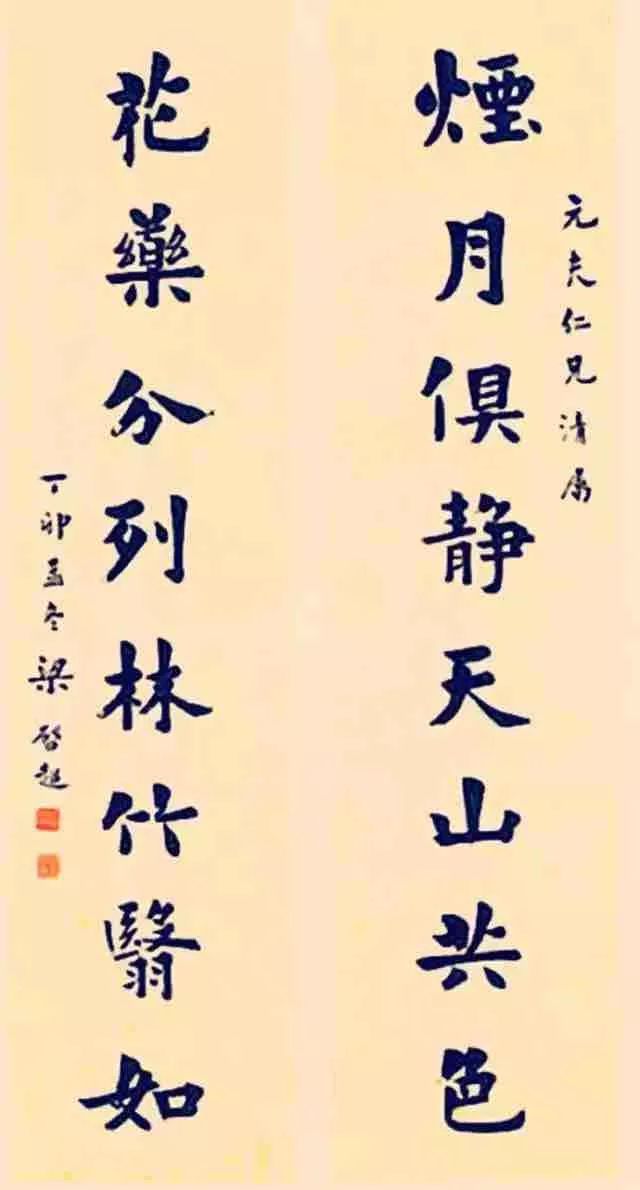 元夫仁兄清属
煙月俱静天山共色
花藥分列林竹翳如
丁卯孟冬梁啓超